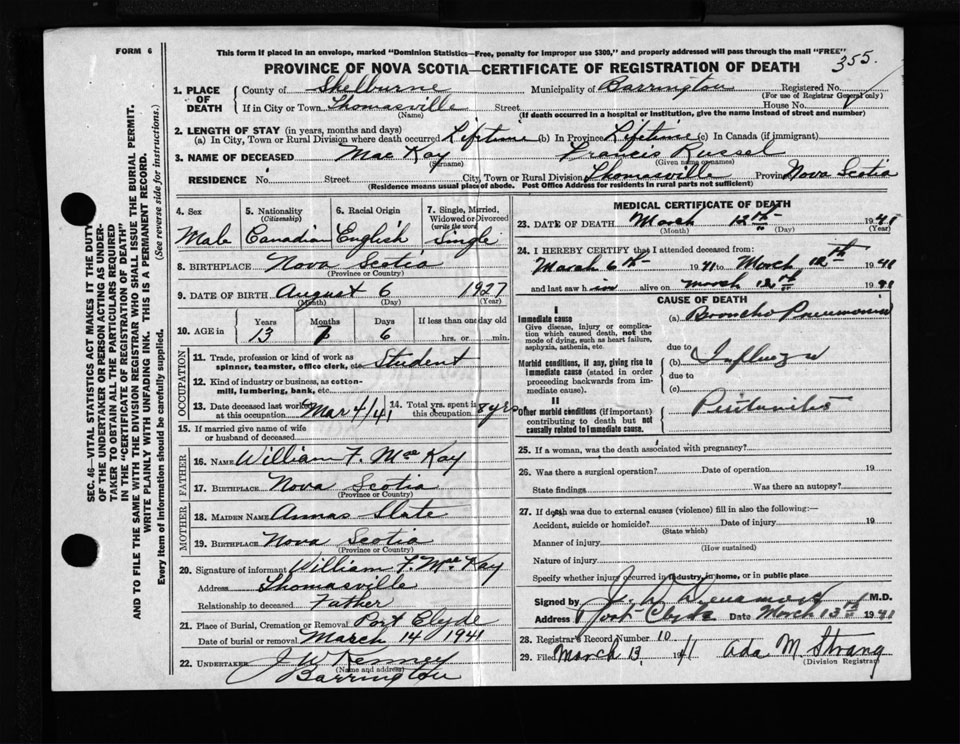 FORM 6
This form if placed in an envelope, marked "Dominion Statistics—Free, penalty for improper use $300," and properly addressed will pass through the mail "FREE"
355.
PROVINCE OF NOVA SCOTIA—CERTIFICATE OF REGISTRATION OF DEATH
1. PLACE OF DEATH
County of Shelburne Municipality of Barrington Registered No.
(For use of Registrar General only)
If in City or Town Thomasville Street House No.
(Name) (If death occurred in a hospital or institution, give the name instead of street and number)
2. LENGTH OF STAY (in years, months and days)
(a) In City, Town or Rural Division where death occurred Lifetime (b) In Province Lifetime (c) In Canada (if immigrant)
3. NAME OF DECEASED Mac Kay Francis Russel
(Surname) (Given name or names)
RESIDENCE No. Street City, Town or Rural Division Thomasville Province Nova Scotia
(Residence means usual place of abode. Post Office Address for residents in rural parts not sufficient)
SEC. 46—VITAL STATISTICS ACT MAKES IT THE DUTY
OF THE UNDERTAKER OR PERSON ACTING AS UNDER-
TAKER TO OBTAIN ALL THE PARTICULARS REQUIRED
IN THE "CERTIFICATE OF REGISTRATION OF DEATH"
AND TO FILE THE SAME WITH THE DIVISION REGISTRAR WHO SHALL ISSUE THE BURIAL PERMIT.
WRITE PLAINLY WITH UNFADING INK. THIS IS A PERMANENT RECORD.
Every item of information should be carefully supplied. (See reverse side for instructions.)
4. Sex 5. Nationality (Citizenship) 6. Racial Origin 7. Single, Married, Widowed or Divorced (write the word)
Male Canadian English Single
8. BIRTHPLACE Nova Scotia
(Province or Country)
9. DATE OF BIRTH August 6 1927
(Month) (Day) (Year)
10. AGE in Years Months Days If less than one day old
13 7 6 hrs. or min.
OCCUPATION
11. Trade, profession or kind of work as spinner, teamster, office clerk, etc. Student
12. Kind of industry or business, as cotton-mill, lumbering, bank, etc.
13. Date deceased last worked at this occupation Mar 4/41 14. Total yrs. spent in this occupation 8 yrs
15. If married give name of wife or husband of deceased
FATHER
16. NAME William F. MacKay
17. BIRTHPLACE Nova Scotia
(Province or Country)
MOTHER
18. MAIDEN NAME Annas Slate
19. BIRTHPLACE Nova Scotia
(Province or Country)
20. Signature of informant William F. MacKay
Address Thomasville
Relationship to deceased Father
21. Place of Burial, Cremation or Removal Port Clyde
Date of burial or removal March 14 1941
22. UNDERTAKER J W Kenney
(Name and address)
Barrington
MEDICAL CERTIFICATE OF DEATH
23. DATE OF DEATH March 12th 1941
(Month) (Day) (Year)
24. I HEREBY CERTIFY that I attended deceased from:
March 6th 1941 to March 12th 1941
and last saw him alive on March 12th 1941
CAUSE OF DEATH
I
Immediate cause
Give disease, injury or complication which caused death, not the mode of dying, such as heart failure, asphyxia, asthenia, etc.
(a) Broncho Pneumonia
due to
Morbid conditions, if any, giving rise to immediate cause (stated in order proceeding backwards from immediate cause).
(b) Influenza
due to
(c)
II
Other morbid conditions (if important) contributing to death but not causally related to immediate cause.
25. If a woman, was the death associated with pregnancy?
26. Was there a surgical operation? Date of operation 19
State findings Was there an autopsy?
27. If death was due to external causes (violence) fill in also the following:—
Accident, suicide or homicide? Date of injury 19
(State which)
Manner of injury
(How sustained)
Nature of injury
Specify whether injury occurred in industry, in home, or in public place
Signed by J. W. M.D.
Address Port Clyde Date March 13th 1941
28. Registrar's Record Number 10
29. Filed March 13, 1941 Ada M. Strang
(Division Registrar)